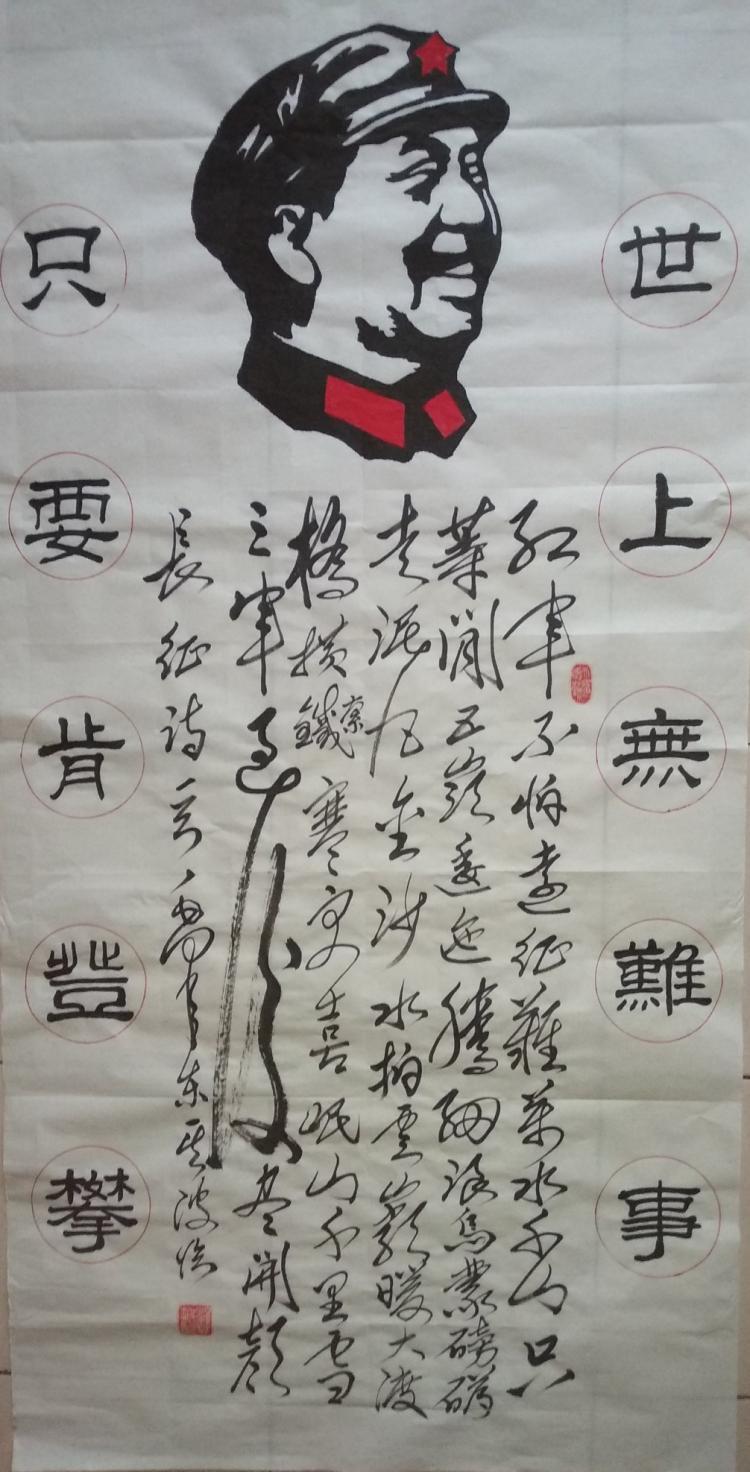 世上無難事
紅軍不怕遠征難萬水千山只
等閒五嶺逶迤騰細浪烏蒙磅礴
走泥丸金沙水拍雲崖暖大渡
橋橫鐵索寒更喜岷山千里雪
三軍過後尽開顏
長征詩
只要肯登攀